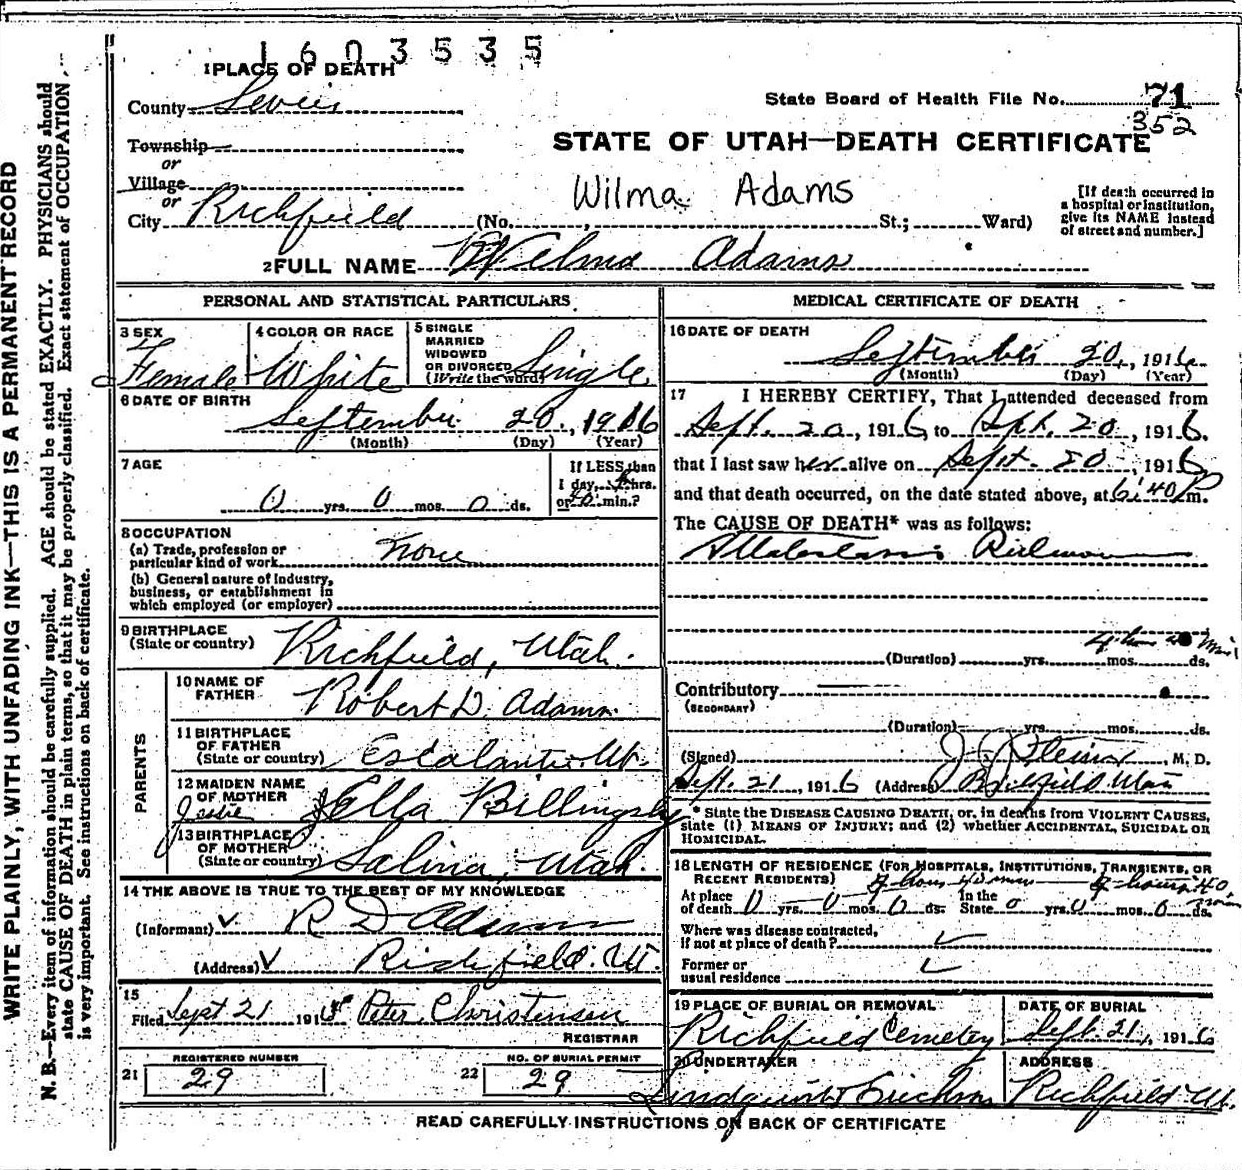 1603535
1 PLACE OF DEATH
County Sevier
State Board of Health File No. 71
352
Township
or
Village
or
City Richfield
STATE OF UTAH—DEATH CERTIFICATE
Wilma Adams
(No. , St.; Ward)
[If death occurred in
a hospital or institution,
give its NAME instead
of street and number.]
2 FULL NAME Wilma Adams
PERSONAL AND STATISTICAL PARTICULARS
3 SEX
Female
4 COLOR OR RACE
White
5 SINGLE
MARRIED
WIDOWED
OR DIVORCED
(Write the word)
Single
6 DATE OF BIRTH
September 20, 1916
(Month) (Day) (Year)
7 AGE
0 yrs. 0 mos. 0 ds.
If LESS than
1 day, 4 hrs.
or 40 min.?
8 OCCUPATION
(a) Trade, profession or
particular kind of work None
(b) General nature of industry,
business, or establishment in
which employed (or employer)
9 BIRTHPLACE
(State or country)
Richfield, Utah.
PARENTS
10 NAME OF
FATHER
Robert D. Adams
11 BIRTHPLACE
OF FATHER
(State or country)
Escalante Ut.
12 MAIDEN NAME
OF MOTHER
Ella Billingsly
13 BIRTHPLACE
OF MOTHER
(State or country)
Salina, Utah.
14 THE ABOVE IS TRUE TO THE BEST OF MY KNOWLEDGE
(Informant) R D Adams
(Address) Richfield. Ut.
15
Filed Sept 21 191 Peter Christensen
REGISTRAR
REGISTERED NUMBER
21 29
NO. OF BURIAL PERMIT
22 29
MEDICAL CERTIFICATE OF DEATH
16 DATE OF DEATH
September 20, 1916
(Month) (Day) (Year)
17 I HEREBY CERTIFY, That I attended deceased from
Sept. 20, 1916, to Sept. 20, 1916.
that I last saw her alive on Sept. 20, 1916
and that death occurred, on the date stated above, at 6:40 P m.
The CAUSE OF DEATH* was as follows:
(Duration) yrs. mos. ds.
Contributory
(SECONDARY)
(Duration) yrs. mos. ds.
(Signed) M. D.
Sept. 21, 1916 (Address) Richfield Utah
* State the DISEASE CAUSING DEATH, or, in deaths from VIOLENT CAUSES,
state (1) MEANS OF INJURY; and (2) whether ACCIDENTAL, SUICIDAL OR
HOMICIDAL.
18 LENGTH OF RESIDENCE (FOR HOSPITALS, INSTITUTIONS, TRANSIENTS, OR
RECENT RESIDENTS) 4 hours 40 min 4 hours 40 min
At place
of death 0 yrs. 0 mos. 0 ds.
In the
State 0 yrs. 0 mos. 0 ds.
Where was disease contracted,
if not at place of death?
Former or
usual residence
19 PLACE OF BURIAL OR REMOVAL
Richfield Cemetery
DATE OF BURIAL
Sept. 21, 1916
20 UNDERTAKER
Lindquist Erickson
ADDRESS
Richfield Ut.
READ CAREFULLY INSTRUCTIONS ON BACK OF CERTIFICATE
WRITE PLAINLY, WITH UNFADING INK—THIS IS A PERMANENT RECORD
N. B.—Every item of information should be carefully supplied. AGE should be stated EXACTLY. PHYSICIANS should
state CAUSE OF DEATH in plain terms, so that it may be properly classified. Exact statement of OCCUPATION
is very important. See instructions on back of certificate.